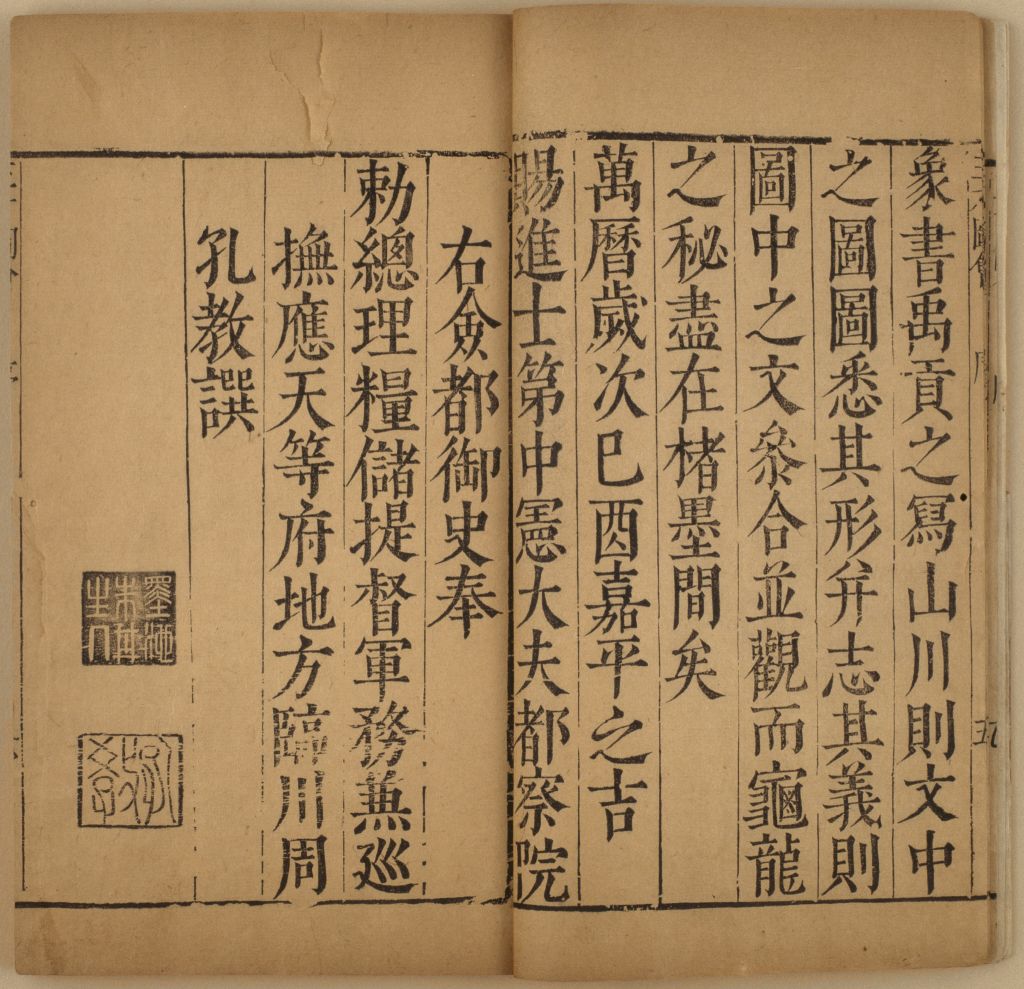 象書禹貢之冩山川則文中
之圖圖悉其形弁志其義則
圖中之文叅合並觀而龜龍
之秘盡在楮墨間矣
萬曆歲次巳酉嘉平之吉
賜進士第中憲大夫都察院
右僉都御史奉
勅總理糧儲提督軍務兼巡
撫應天等府地方臨川周
孔教譔